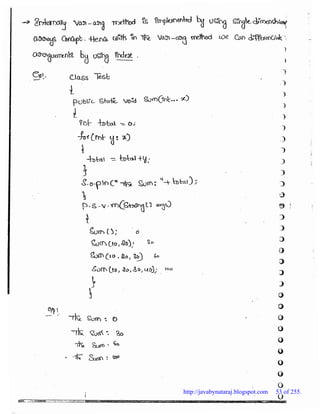 → Internally var-arg method is implemented by using single dimensional
arrays concept. Hence with in the var-arg method we can differentiate
arguments by using index.
Eg:.
class Test
{
public static void sum(int... x)
{
int total = 0;
for (int y : x)
{
total = total+y;
}
S.o.pln("The Sum: "+ total);
}
p.s.v.m(String[] args)
{
sum(); 0
sum(10,20); 30
sum(10,20,30) 60
sum(10,20,30,40); 100
}
}
O/P:
The Sum : 0
The Sum : 30
The Sum : 60
The Sum : 100
http://javabynataraj.blogspot.com 53 of 255.